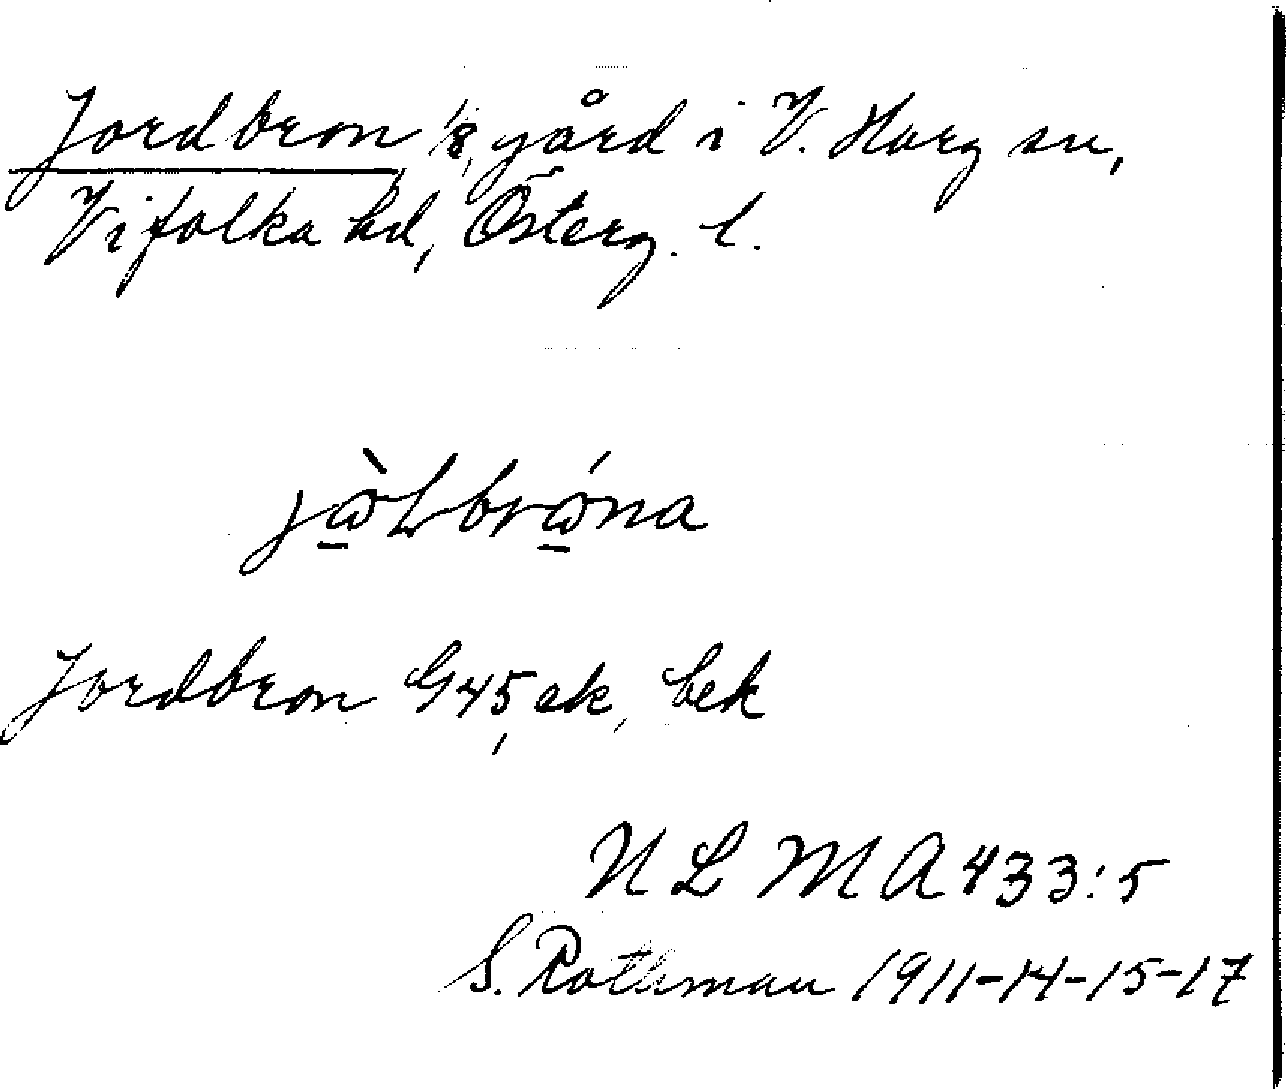 Jordbron 1/8, gård i V. Harg sn,
Vifolka hd, Österg. l.
jɷ̠̀Lbrɷ̠́na
Jordbron G45, ek, bek
ULMA 433:5
S. Rothman 1911-14-15-17